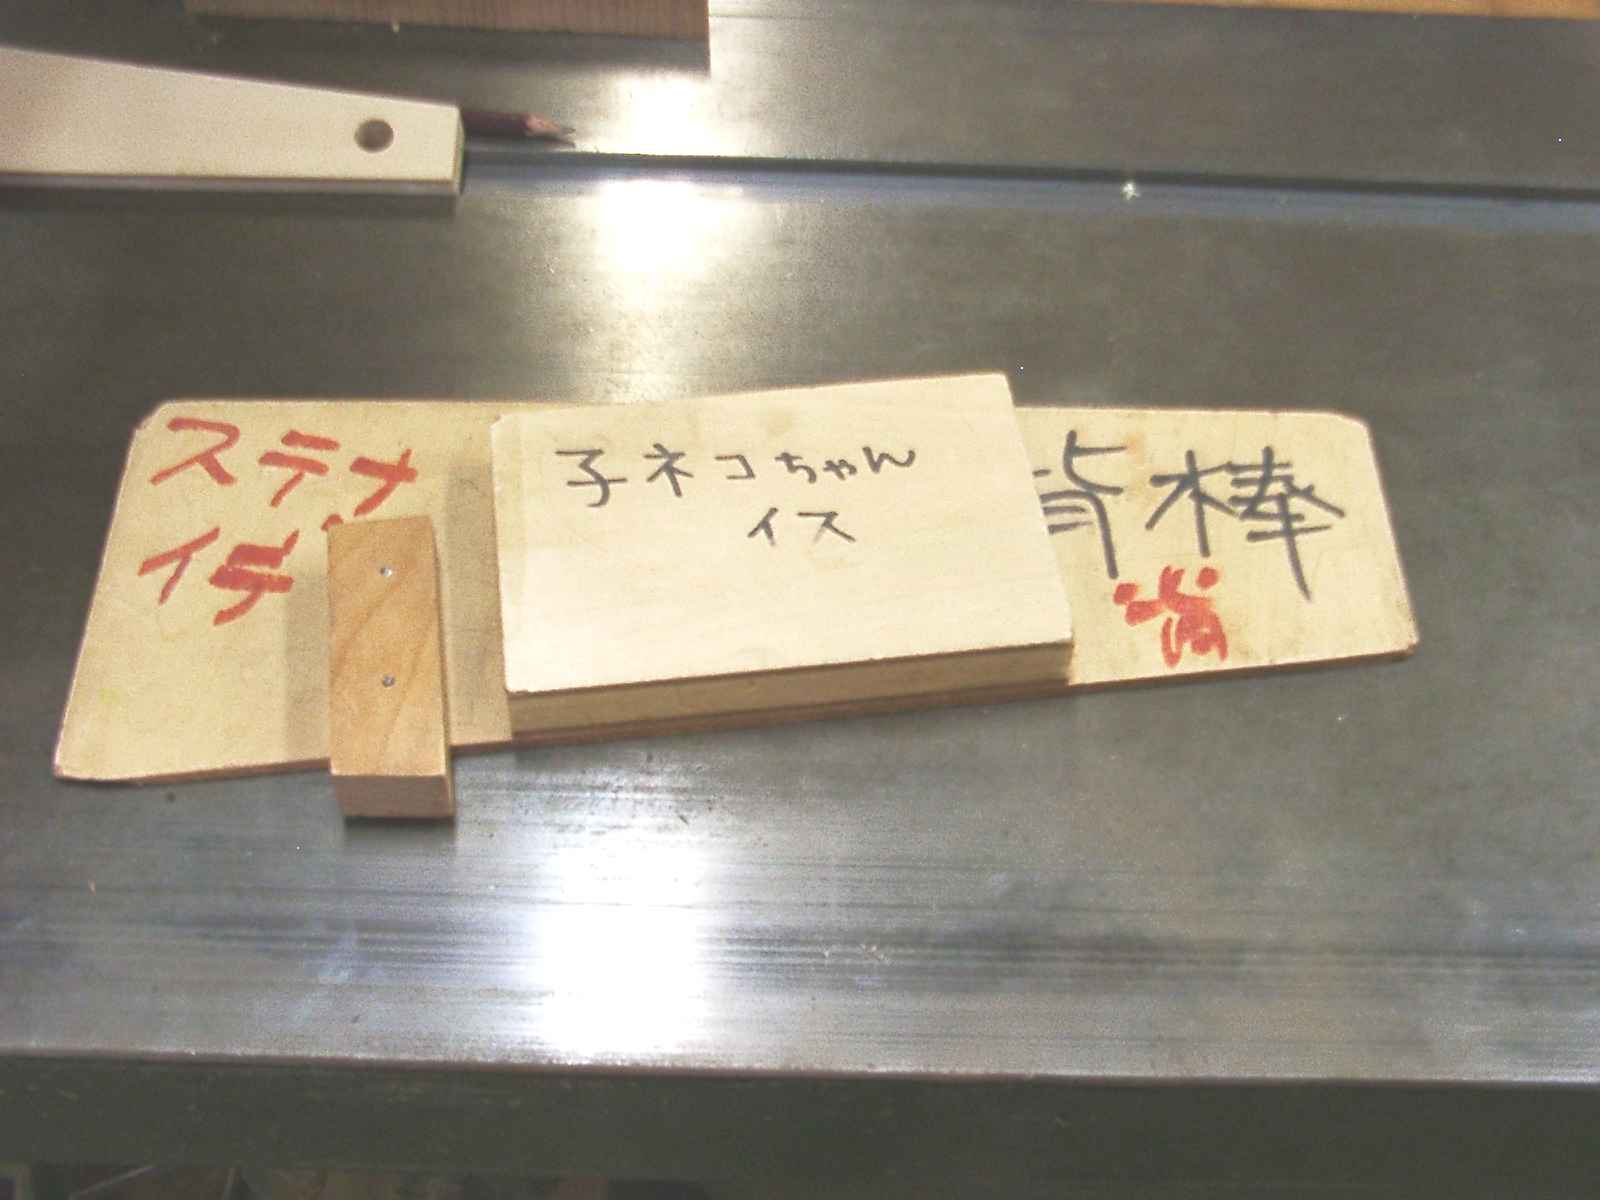 ステナ
イチ
子ネコちゃん
イス
背棒